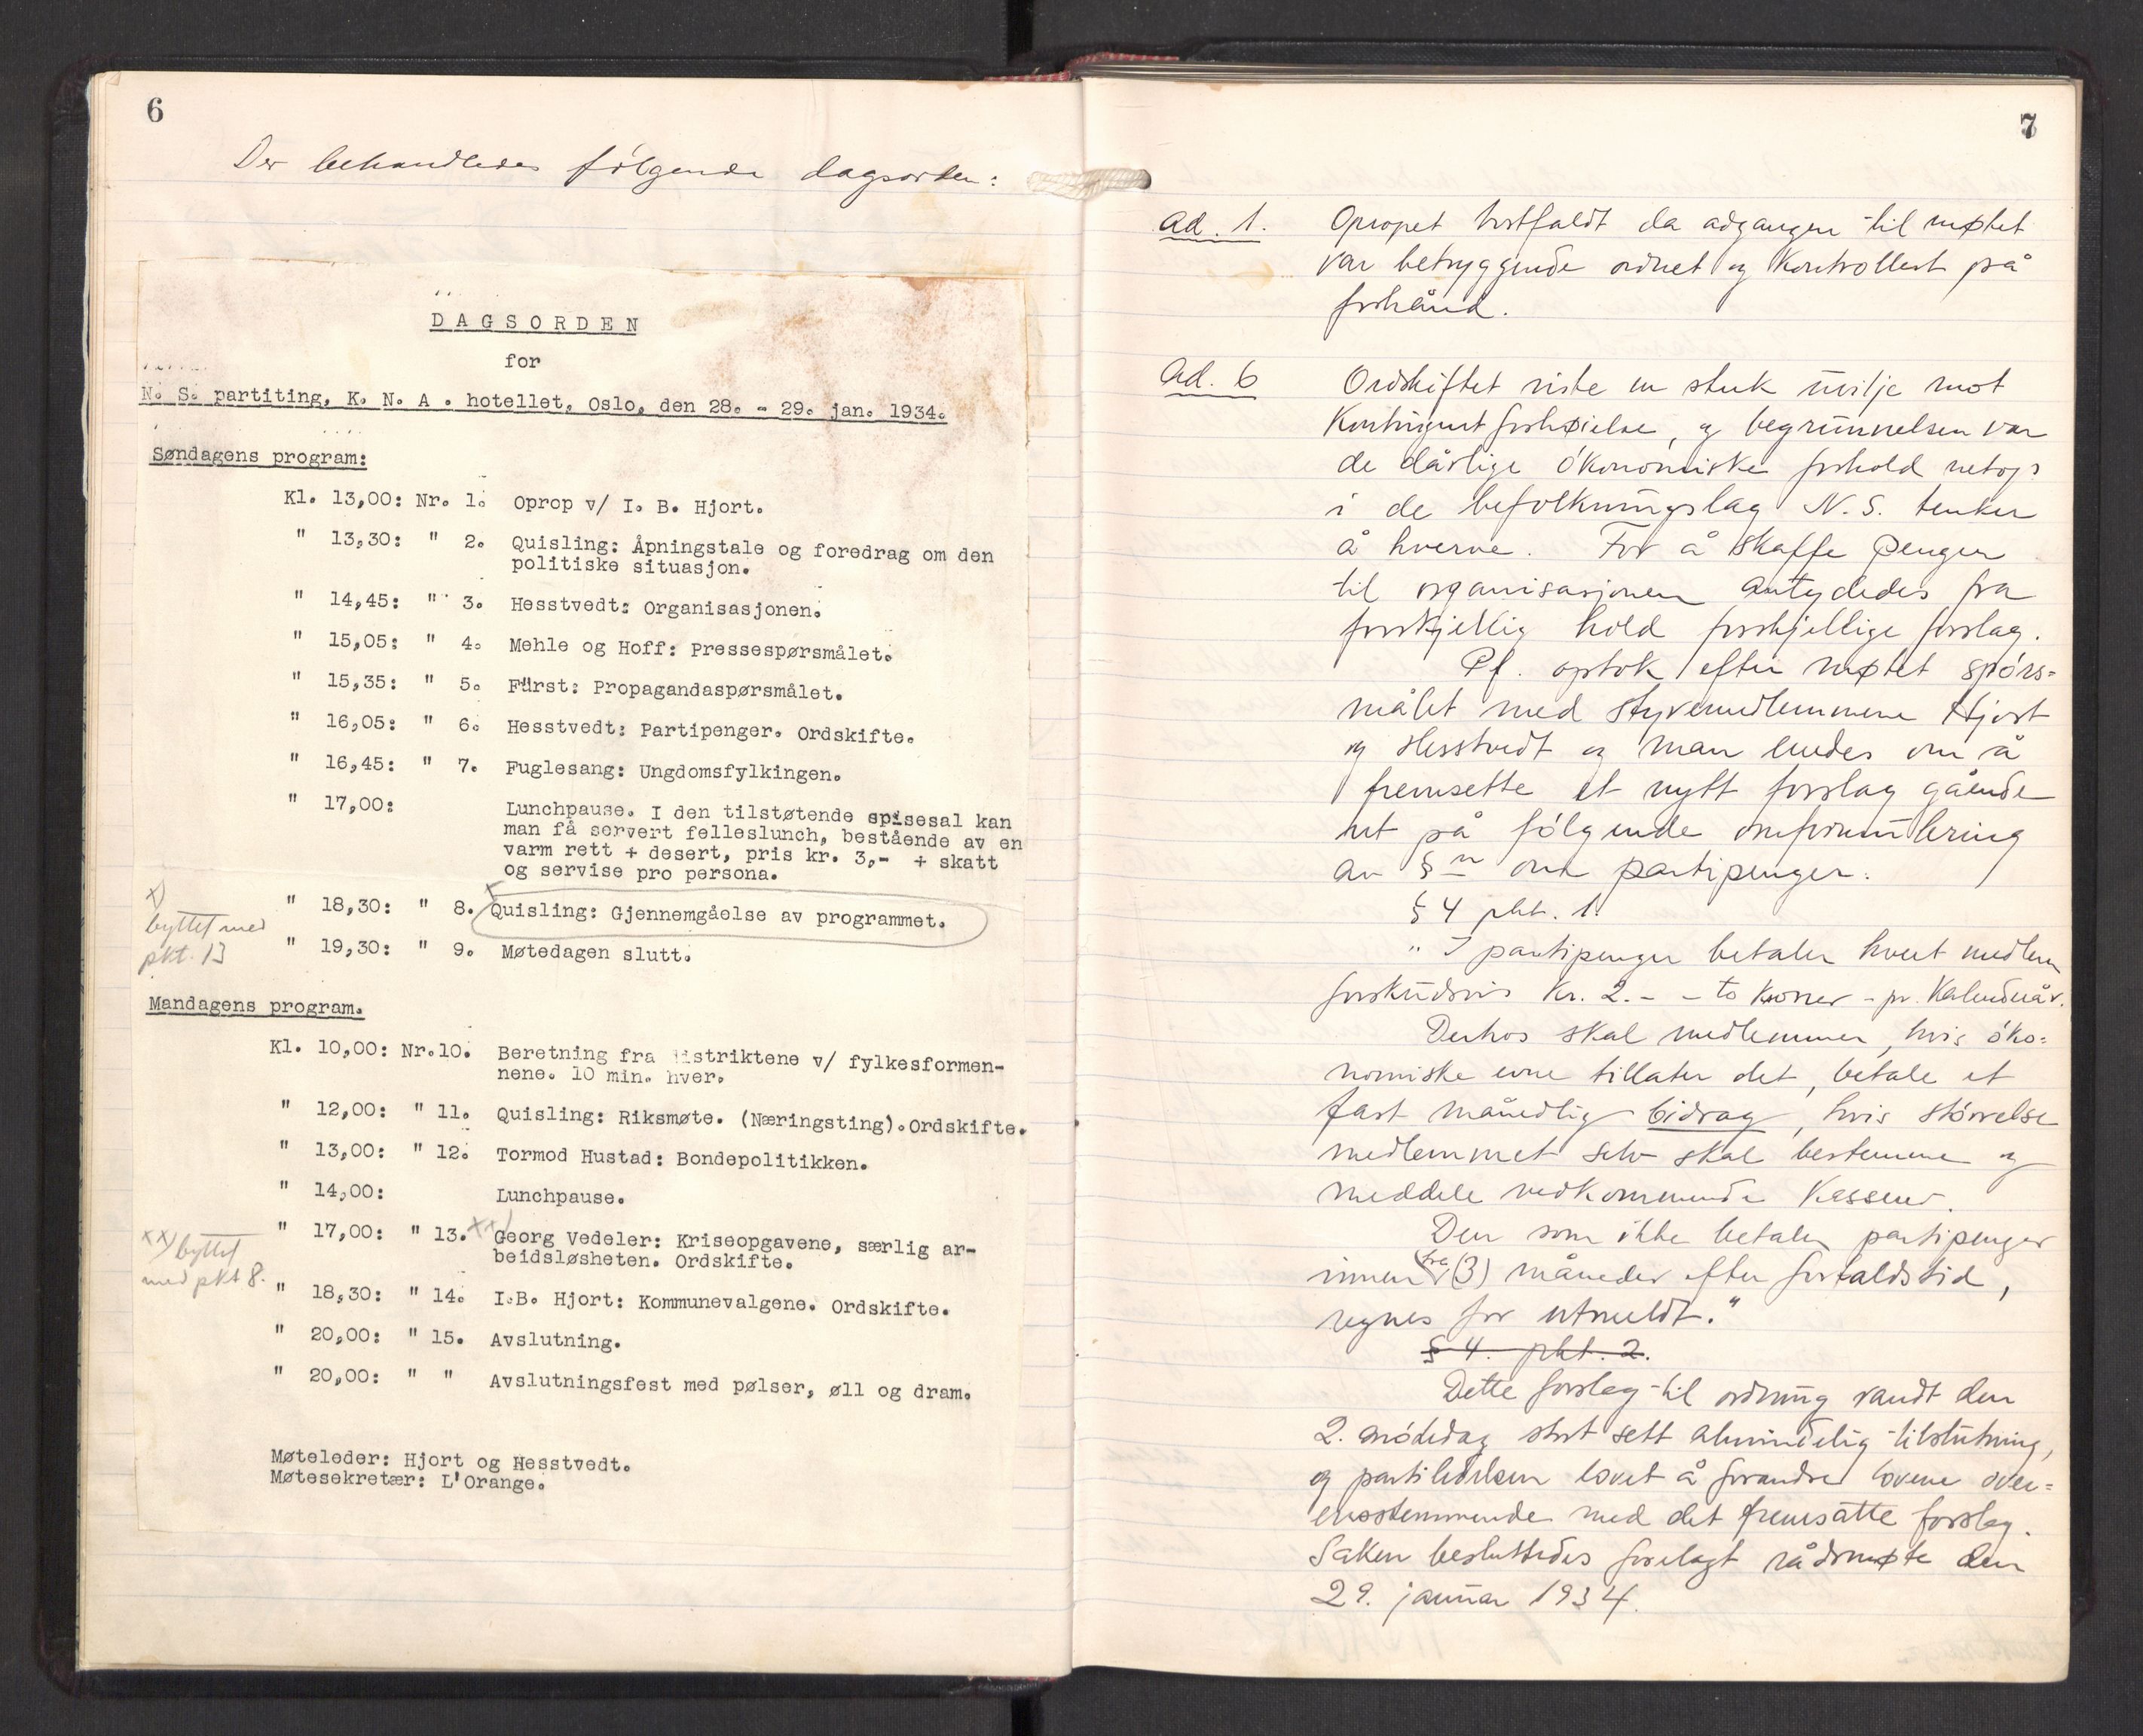 6
Der behandledes følgende dagsorden:
DAGSORDEN
for
N. S. partiting, K. N. A. hotellet, Oslo, den 28. - 29. jan. 1934.
Søndagens program:
Kl. 13,00: Nr. 1. Oprop v/ I. B. Hjort.
" 13,30: " 2. Quisling: Åpningstale og foredrag om den
politiske situasjon.
" 14,45: " 3. Hesstvedt: Organisasjonen.
" 15,05: " 4. Mehle og Hoff: Pressespørsmålet.
" 15,35: " 5. Fürst: Propagandaspørsmålet.
" 16,05: " 6. Hesstvedt: Partipenger. Ordskifte.
" 16,45: " 7. Fuglesang: Ungdomsfylkingen.
" 17,00: Lunchpause. I den tilstøtende spisesal kan
man få servert felleslunch, bestående av en
varm rett + desert, pris kr. 3,- + skatt
og servise pro persona.
x) byttet med pkt. 13
" 18,30: " 8. x Quisling: Gjennemgåelse av programmet.
" 19,30: " 9. Møtedagen slutt.
Mandagens program.
Kl. 10,00: Nr.10. Beretning fra distriktene v/ fylkesformen-
nene. 10 min. hver.
" 12,00: " 11. Quisling: Riksmøte. (Næringsting).Ordskifte.
" 13,00: " 12. Tormod Hustad: Bondepolitikken.
" 14,00: Lunchpause.
xx) byttet med pkt 8.
" 17,00: " 13. xx) Georg Vedeler: Kriseopgavene, særlig ar-
beidsløsheten. Ordskifte.
" 18,30: " 14. I.B. Hjort: Kommunevalgene. Ordskifte.
" 20,00: " 15. Avslutning.
" 20,00: " " Avslutningsfest med pølser, øll og dram.
Møteleder: Hjort og Hesstvedt.
Møtesekretær: L'Orange.
7
ad. 1. Opropet bortfaldt da adgangen til møtet
var betryggende ordnet og kontrollert på
forhånd.
ad. 6 Ordskiftet viste en sterk uvilje mot
kontingentforhøielse, og begrunnelsen var
de dårlige økonomiske forhold netop
i de befolkningslag N. S. tenker
å hverve. For å skaffe penger
til organisasjonen antydedes fra
forskjellig hold forskjellige forslag.
Pf. optok efter møtet spørs=
målet med styremedlemmene Hjort
og Hesstvedt og man enedes om å
fremsette et nytt forslag gående
ut på følgende omformulering
av §en om partipenger:
§ 4 pkt. 1.
" I partipenger betaler hvert medlem
forskudsvis Kr. 2.- - to kroner - pr. Kalenderår.
Derhos skal medlemmer, hvis øko=
nomiske evne tillater det, betale et
fast månedlig bidrag, hvis størrelse
medlemmet selv skal bestemme og
meddele vedkommende kasserer.
Den som ikke betaler partipenger
innen tre (3) måneder efter forfaldstid,
regnes for utmeldt."
§ 4. pkt. 2.
Dette forslag til ordning vandt den
2. mötedag stort sett almindelig tilslutning,
og partiledelsen lovet å forandre lovene over=
ensstemmende med det fremsatte forslag.
Saken besluttedes forelagt rådsmøte den
29. januar 1934.